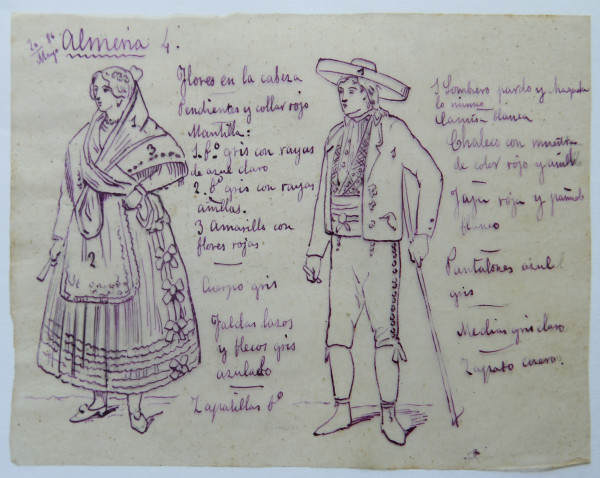 20 86
Mayo
Almeria 4.
Flores en la cabeza
Pendientes y collar rojo
Mantilla:
1. fº gris con rayas
de azul claro
2. fº gris con rayas
3 Amarillo con
flores rojas.
Cuerpo gris
Faldas lazos
y flecos gris
azulado
Zapatillas fº
1
3
2
1
1
1 Sombrero pardo y
lo mismo
Camisa blanca
Chaleco con
de color rojo y
Faja roja y
blanco
Pantalones azul
gris
Medias gris claro
Zapato